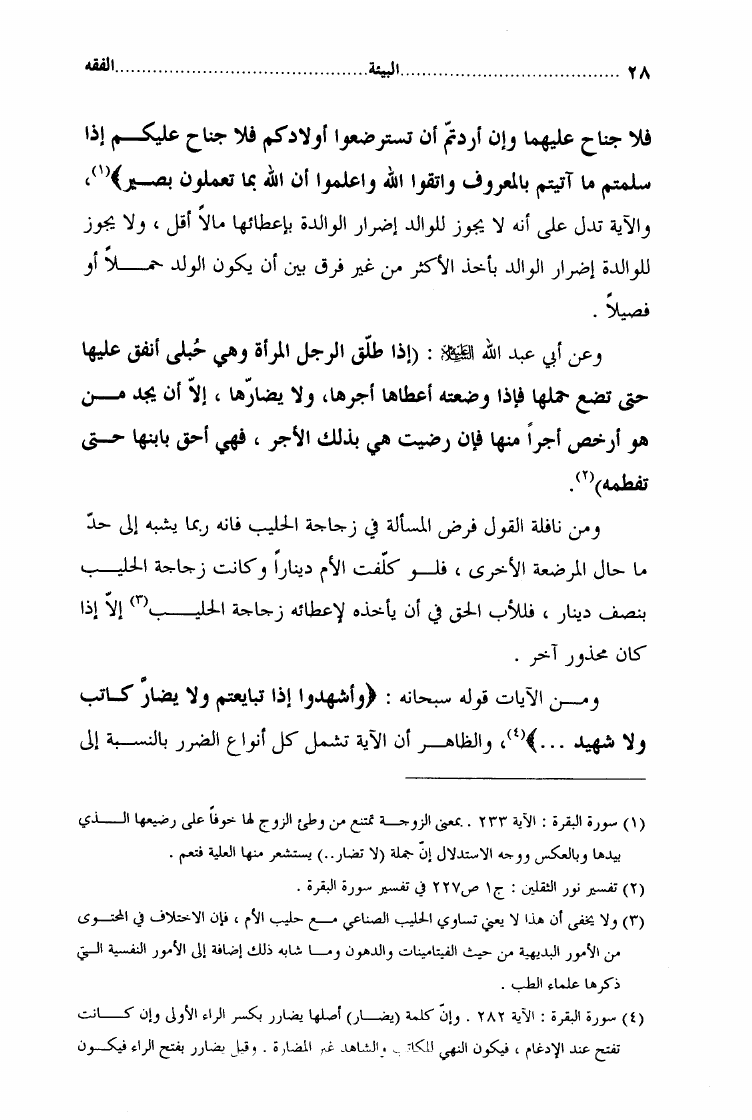 ٢٨ .................................................. البيئة .................................................. الفقه
فلا جناح عليهما وإن أردتمّ أن تسترضعوا أولادكم فلا جناح عليكــم إذا
سلمتم ما آتيتم بالمعروف واتقوا الله واعلموا أن الله بما تعملون بصـير﴾(١)،
والآية تدل على أنه لا يجوز للوالد إضرار الوالدة بإعطائها مالاً أقل ، ولا يجوز
للوالدة إضرار الوالد بأخذ الأكثر من غير فرق بين أن يكون الولد حمــلاً أو
فصيلاً .
وعن أبي عبد الله عليه السلام : (إذا طلّق الرجل المرأة وهي حُبلى أنفق عليها
حتى تضع حملها فإذا وضعته أعطاها أجرها، ولا يضارّها ، إلاّ أن يجد مــن
هو أرخص أجراً منها فإن رضيت هي بذلك الأجر ، فهي أحق بابنها حــتى
تفطمه)(٢).
ومن نافلة القول فرض المسألة في زجاجة الحليب فانه ربما يشبه إلى حدّ
ما حال المرضعة الأخرى ، فلــو كلّفت الأم ديناراً وكانت زجاجة الحليــب
بنصف دينار ، فللأب الحق في أن يأخذه لإعطائه زجاجة الحليـــب(٣) إلاّ إذا
كان محذور آخر .
ومــن الآيات قوله سبحانه : ﴿وأشهدوا إذا تبايعتم ولا يضارّ كــاتب
ولا شهيد ...﴾(٤)، والظاهــر أن الآية تشمل كل أنواع الضرر بالنســبة إلى
(١) سورة البقرة : الآية ٢٣٣ . بمعنى الزوجــة تمتنع من وطئ الزوج لها خوفاً على رضيعها الــذي
بيدها وبالعكس ووجه الاستدلال إنّ جملة (لا تضار..) يستشعر منها العلية فتعم .
(٢) تفسير نور الثقلين : ج١ ص٢٢٧ في تفسير سورة البقرة .
(٣) ولا يخفى أن هذا لا يعني تساوي الحليب الصناعي مــع حليب الأم ، فإن الاختلاف في المحتــوى
من الأمور البديهية من حيث الفيتامينات والدهون ومــا شابه ذلك إضافة إلى الأمور النفسية الــتي
ذكرها علماء الطب .
(٤) سورة البقرة : الآية ٢٨٢ . وإنّ كلمة (يضــار) أصلها يضارر بكسر الراء الأولى وإن كــانت
تفتح عند الإدغام ، فيكون النهي للكاتب والشاهد عن المضارة . وقيل يضارر بفتح الراء فيكــون